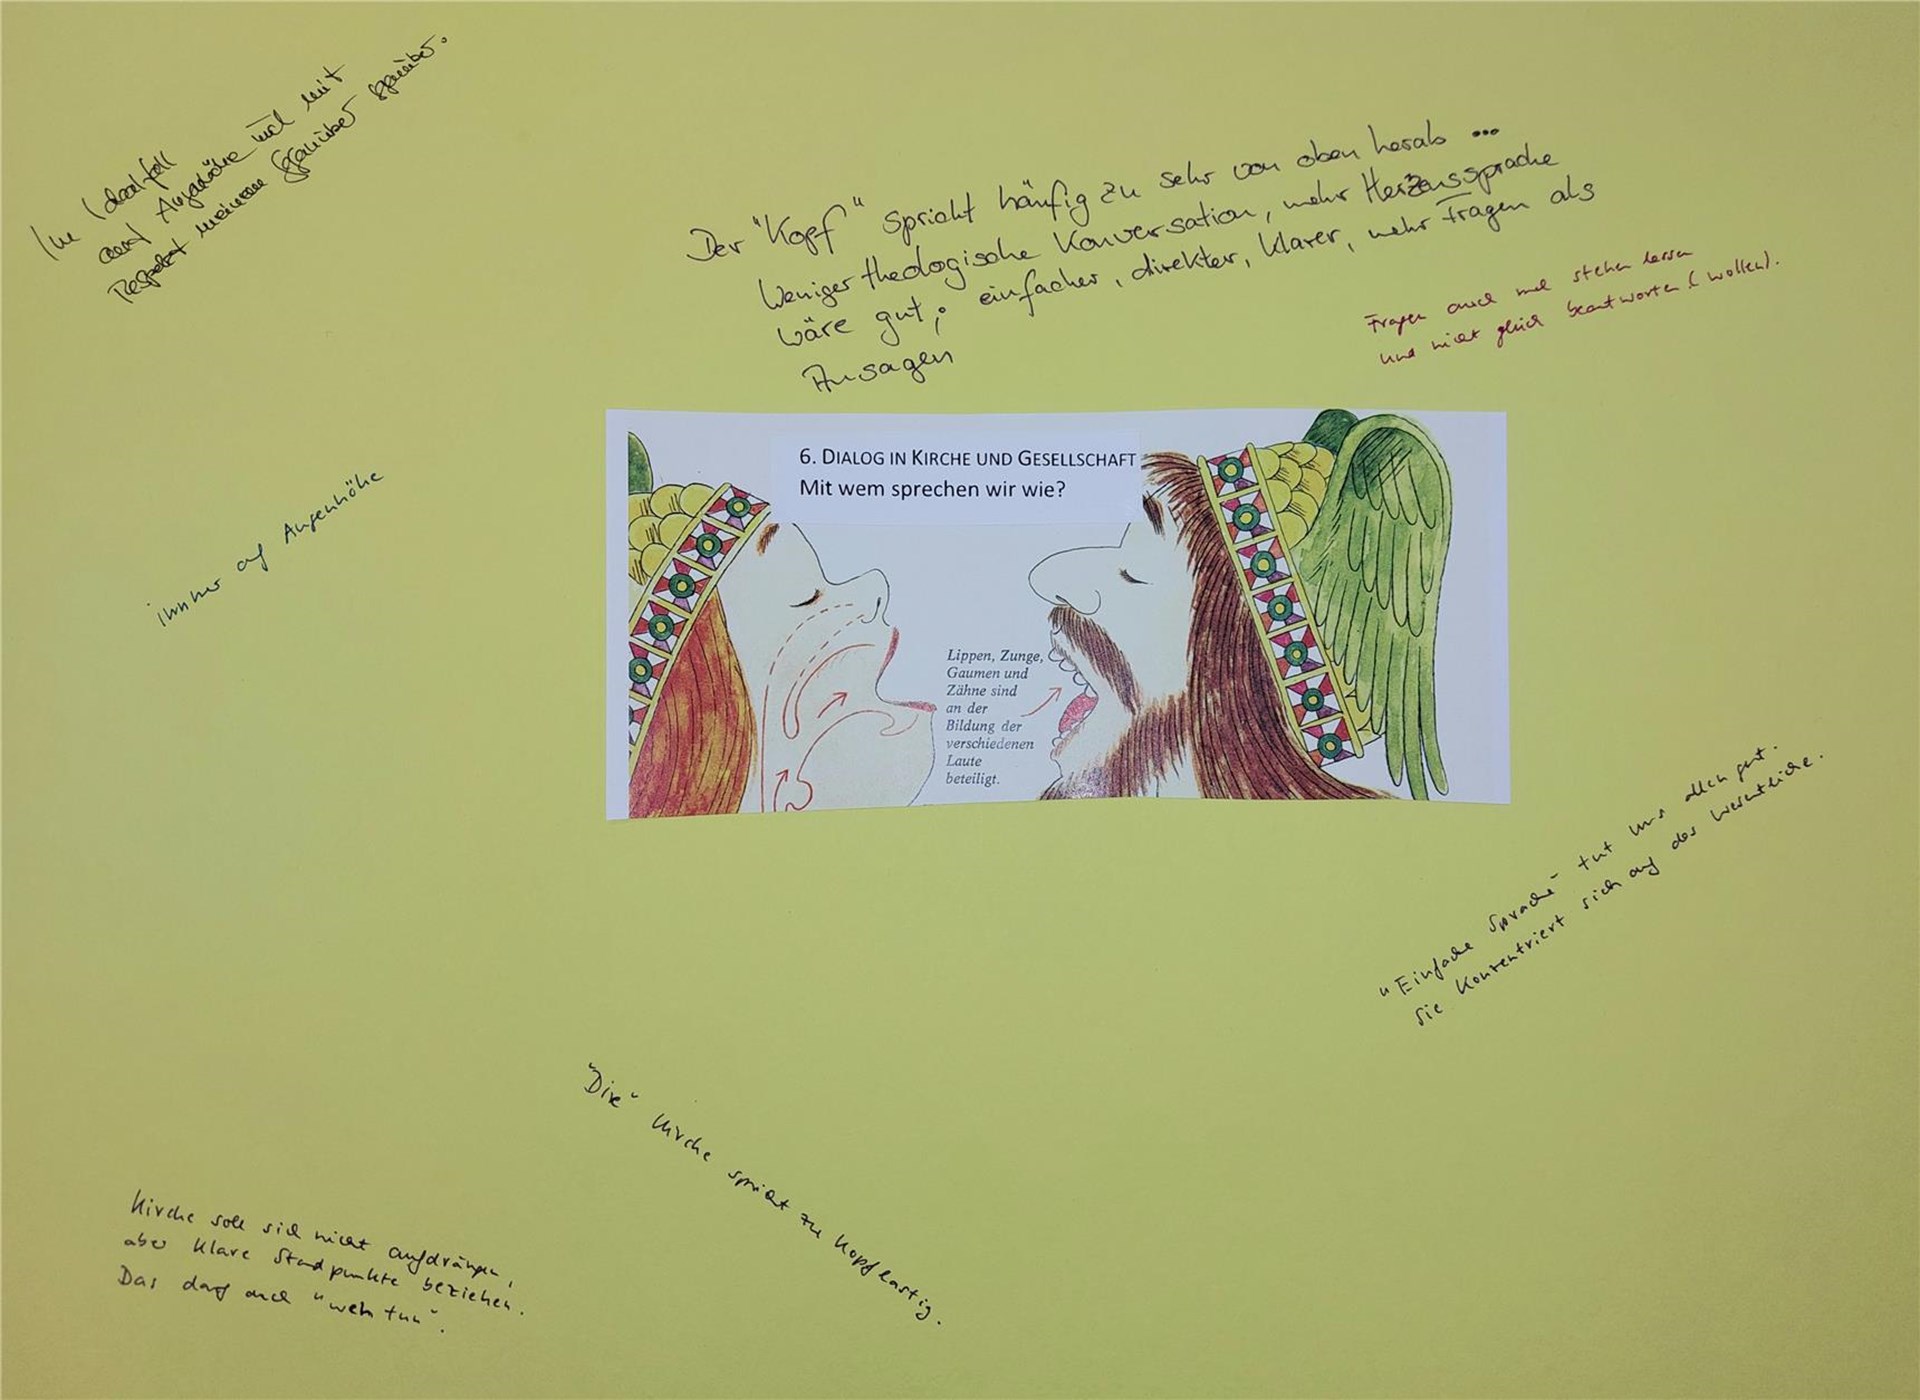 Im Idealfall
auf Augenhöhe und mit
Respekt meinem Gegenüber gegenüber.
Der "Kopf" spricht häufig zu sehr von oben herab ...
Weniger theologische Konversation, mehr Herzenssprache
wäre gut; einfacher, direkter, klarer, mehr Fragen als
Aussagen
Fragen auch mal stehen lassen
und nicht gleich beantworten (wollen).
immer auf Augenhöhe
6. DIALOG IN KIRCHE UND GESELLSCHAFT
Mit wem sprechen wir wie?
Lippen, Zunge,
Gaumen und
Zähne sind
an der
Bildung der
verschiedenen
Laute
beteiligt.
"Einfache Sprache" tut uns allen gut.
Sie konzentriert sich auf das Wesentliche.
"Die" Kirche spricht zu kopflastig.
Kirche soll sich nicht aufdrängen,
aber klare Standpunkte beziehen.
Das darf auch "weh tun".